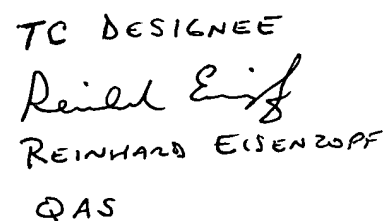 TC DESIGNEE
Reinhard Eisenzopf
REINHARD EISENZOPF
QAS